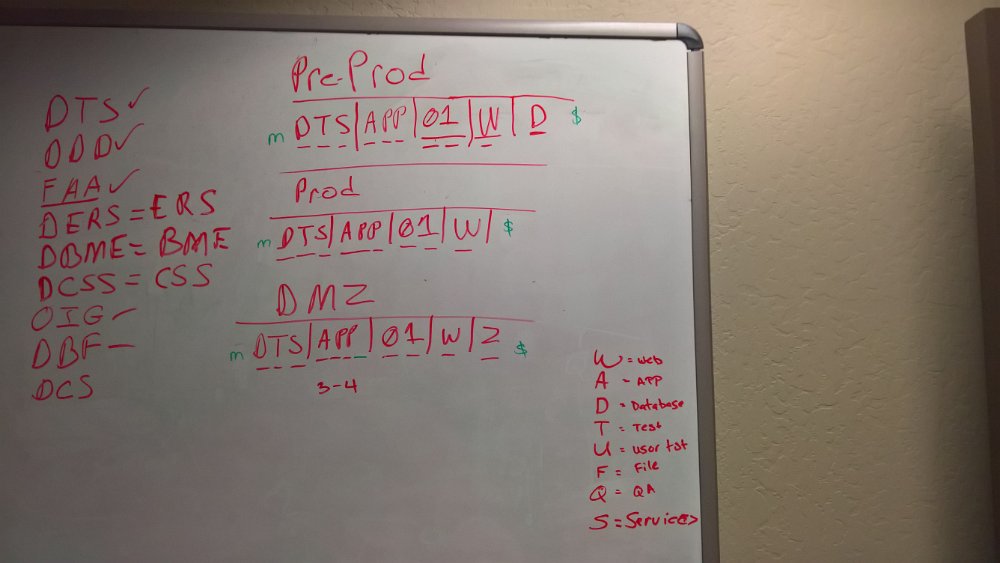 DTS ✓
DDD ✓
FAA ✓
DERS = ERS
DBME = BME
DCSS = CSS
OIG -
DBF -
DCS
Pre-Prod
m DTS | APP | 01 | W | D $
Prod
m DTS | APP | 01 | W | $
DMZ
m DTS | APP | 01 | W | Z $
3-4
W = Web
A = APP
D = Database
T = Test
U = usor tst
F = File
Q = QA
S = Service<>